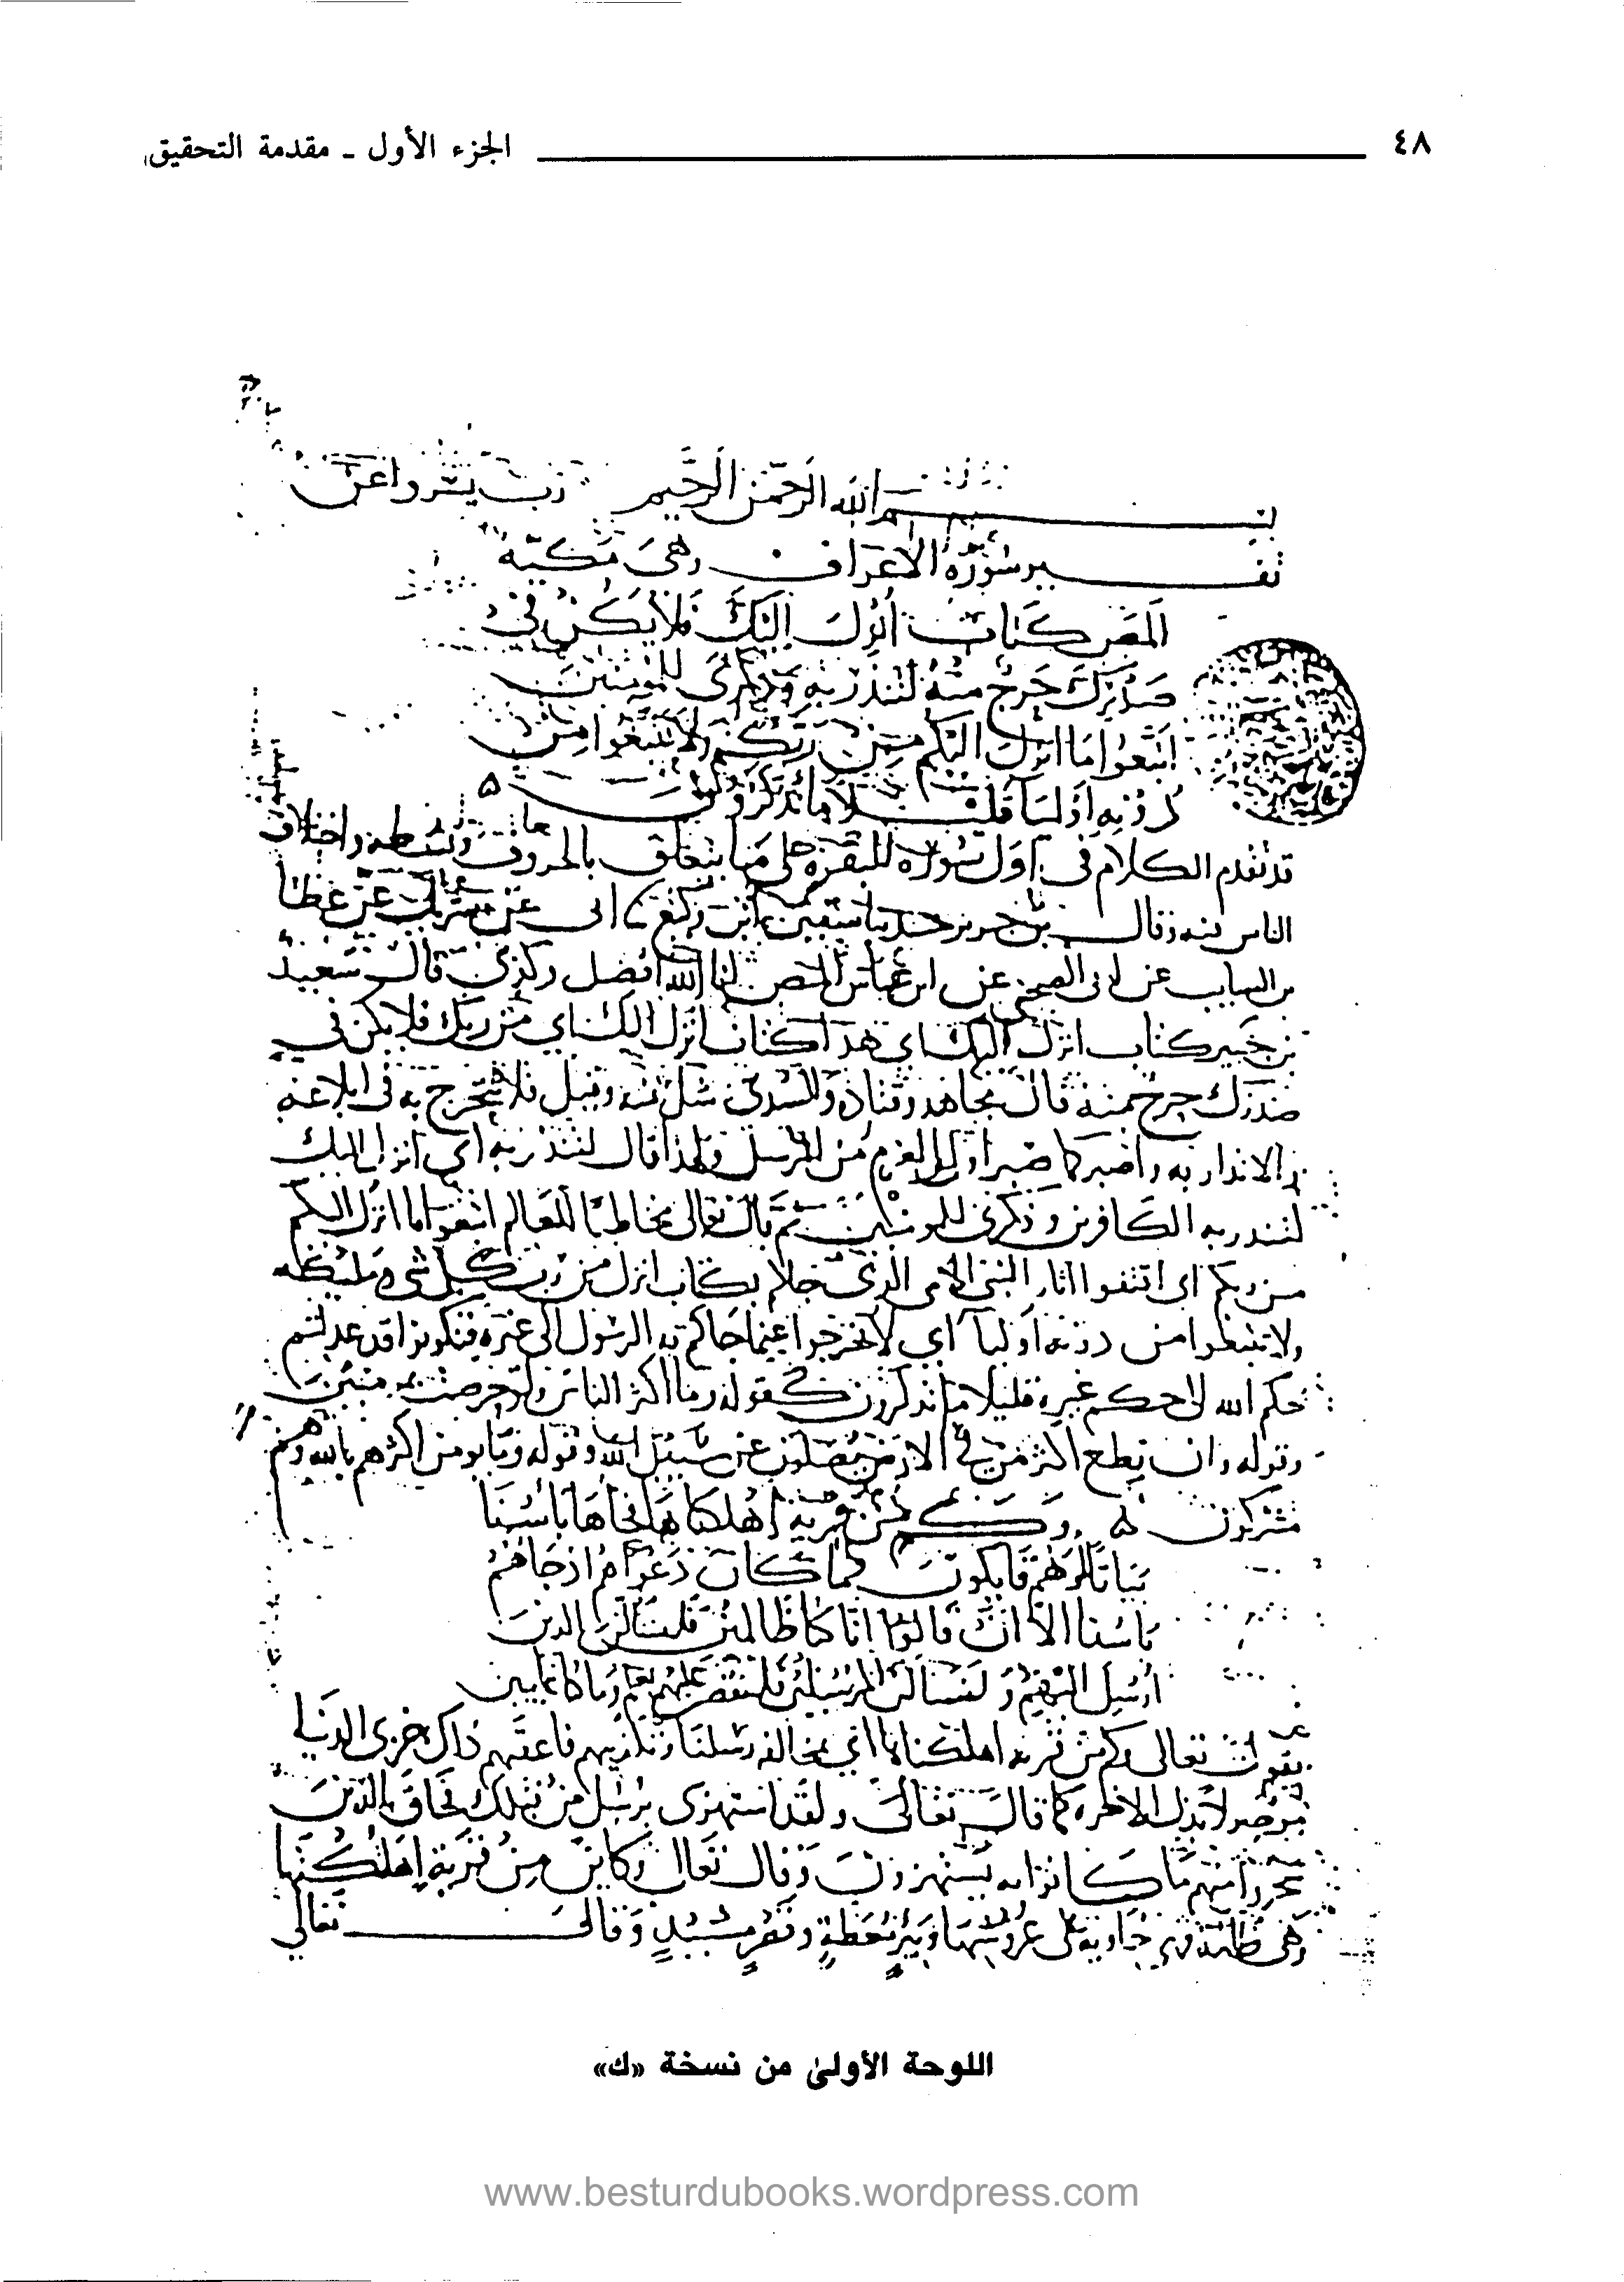 ٤٨
الجزء الأول ـ مقدمة التحقيق
بسم الله الرحمن الرحيم رب يسر واعن
تفسير سورة الاعراف وهي مكية
المص كتاب انزل اليك فلا يكن في
صدرك حرج منه لتنذر به وذكرى للمومنين
اتبعوا ما انزل اليكم من ربكم ولا تتبعوا من
دونه اوليا قليلا ما تذكرون
قد تقدم الكلام في اول سورة البقرة على ما يتعلق بالحروف وبسطه واختلاف
الناس فيه وقال بن جرير حدثنا سفين بن وكيع انا ابى عن شريك عن عطا
بن السايب عن ابى الضحى عن ابن عباس المص انا الله افضل وكذى قال سعيد
بن جبير كتاب انزل اليك اي هذا كتاب انزل اليك اي من ربك فلا يكن في
صدرك حرج منه قال مجاهد وقتادة والسدي شك منه وقيل لا تتحرج به في ابلاغه
والانذار به واصبر كما صبر اولوا العزم من الرسل ولهذا قال لتنذر به اي انزل اليك
لتنذر به الكافرين وذكرى للمومنين ثم قال تعالى مخاطبا للعالم اتبعوا ما انزل اليكم
من ربكم اى اقتفوا اثار النبي الامي الذي جاكم بكتاب انزل من رب كل شي ومليكه
ولا تتبعوا من دونه اوليا اي لا تخرجوا عما جاكم به الرسول الى غيره فتكونوا قد عدلتم
حكم الله الى حكم غيره قليلا ما تذكرون كقوله وما اكثر الناس ولو حرصت بمومنين
وقوله وان تطع اكثر من في الارض يضلوك عن سبيل الله وقوله وما يومن اكثرهم بالله الا وهم
مشركون وكم من قرية اهلكناها فجاها باسنا
بياتا او هم قايلون فما كان دعواهم اذ جاهم
باسنا الا ان قالوا انا كنا ظالمين فلنسالن الذين
ارسل اليهم ولنسالن المرسلين فلنقصن عليهم بعلم وما كنا غايبين
يقول تعالى وكم من قرية اهلكناها اي بمخالفة رسلنا وتكذيبهم فاعقبهم ذلك خزى الدنيا
موصولا بذل الاخرة كما قال تعالى ولقد استهزى برسل من قبلك فحاق بالذين
سخروا منهم ما كانوا به يستهزون وقال تعالى وكاين من قرية اهلكتها
وهي ظالمة فهى خاوية على عروشها وبير معطلة وقصر مشيد وقال تعالى
اللوحة الأولىٰ من نسخة «ك»
www.besturdubooks.wordpress.com